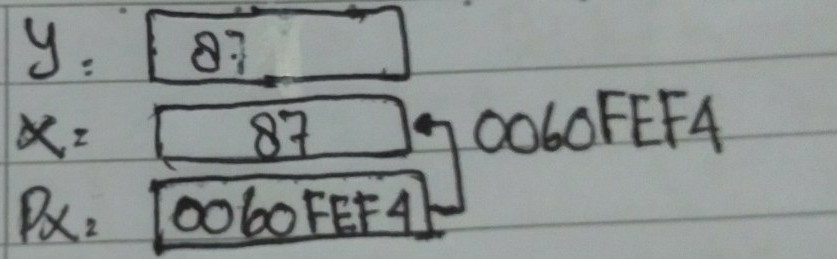 y: 87
x: 87 0060FEF4
Px: 0060FEF4